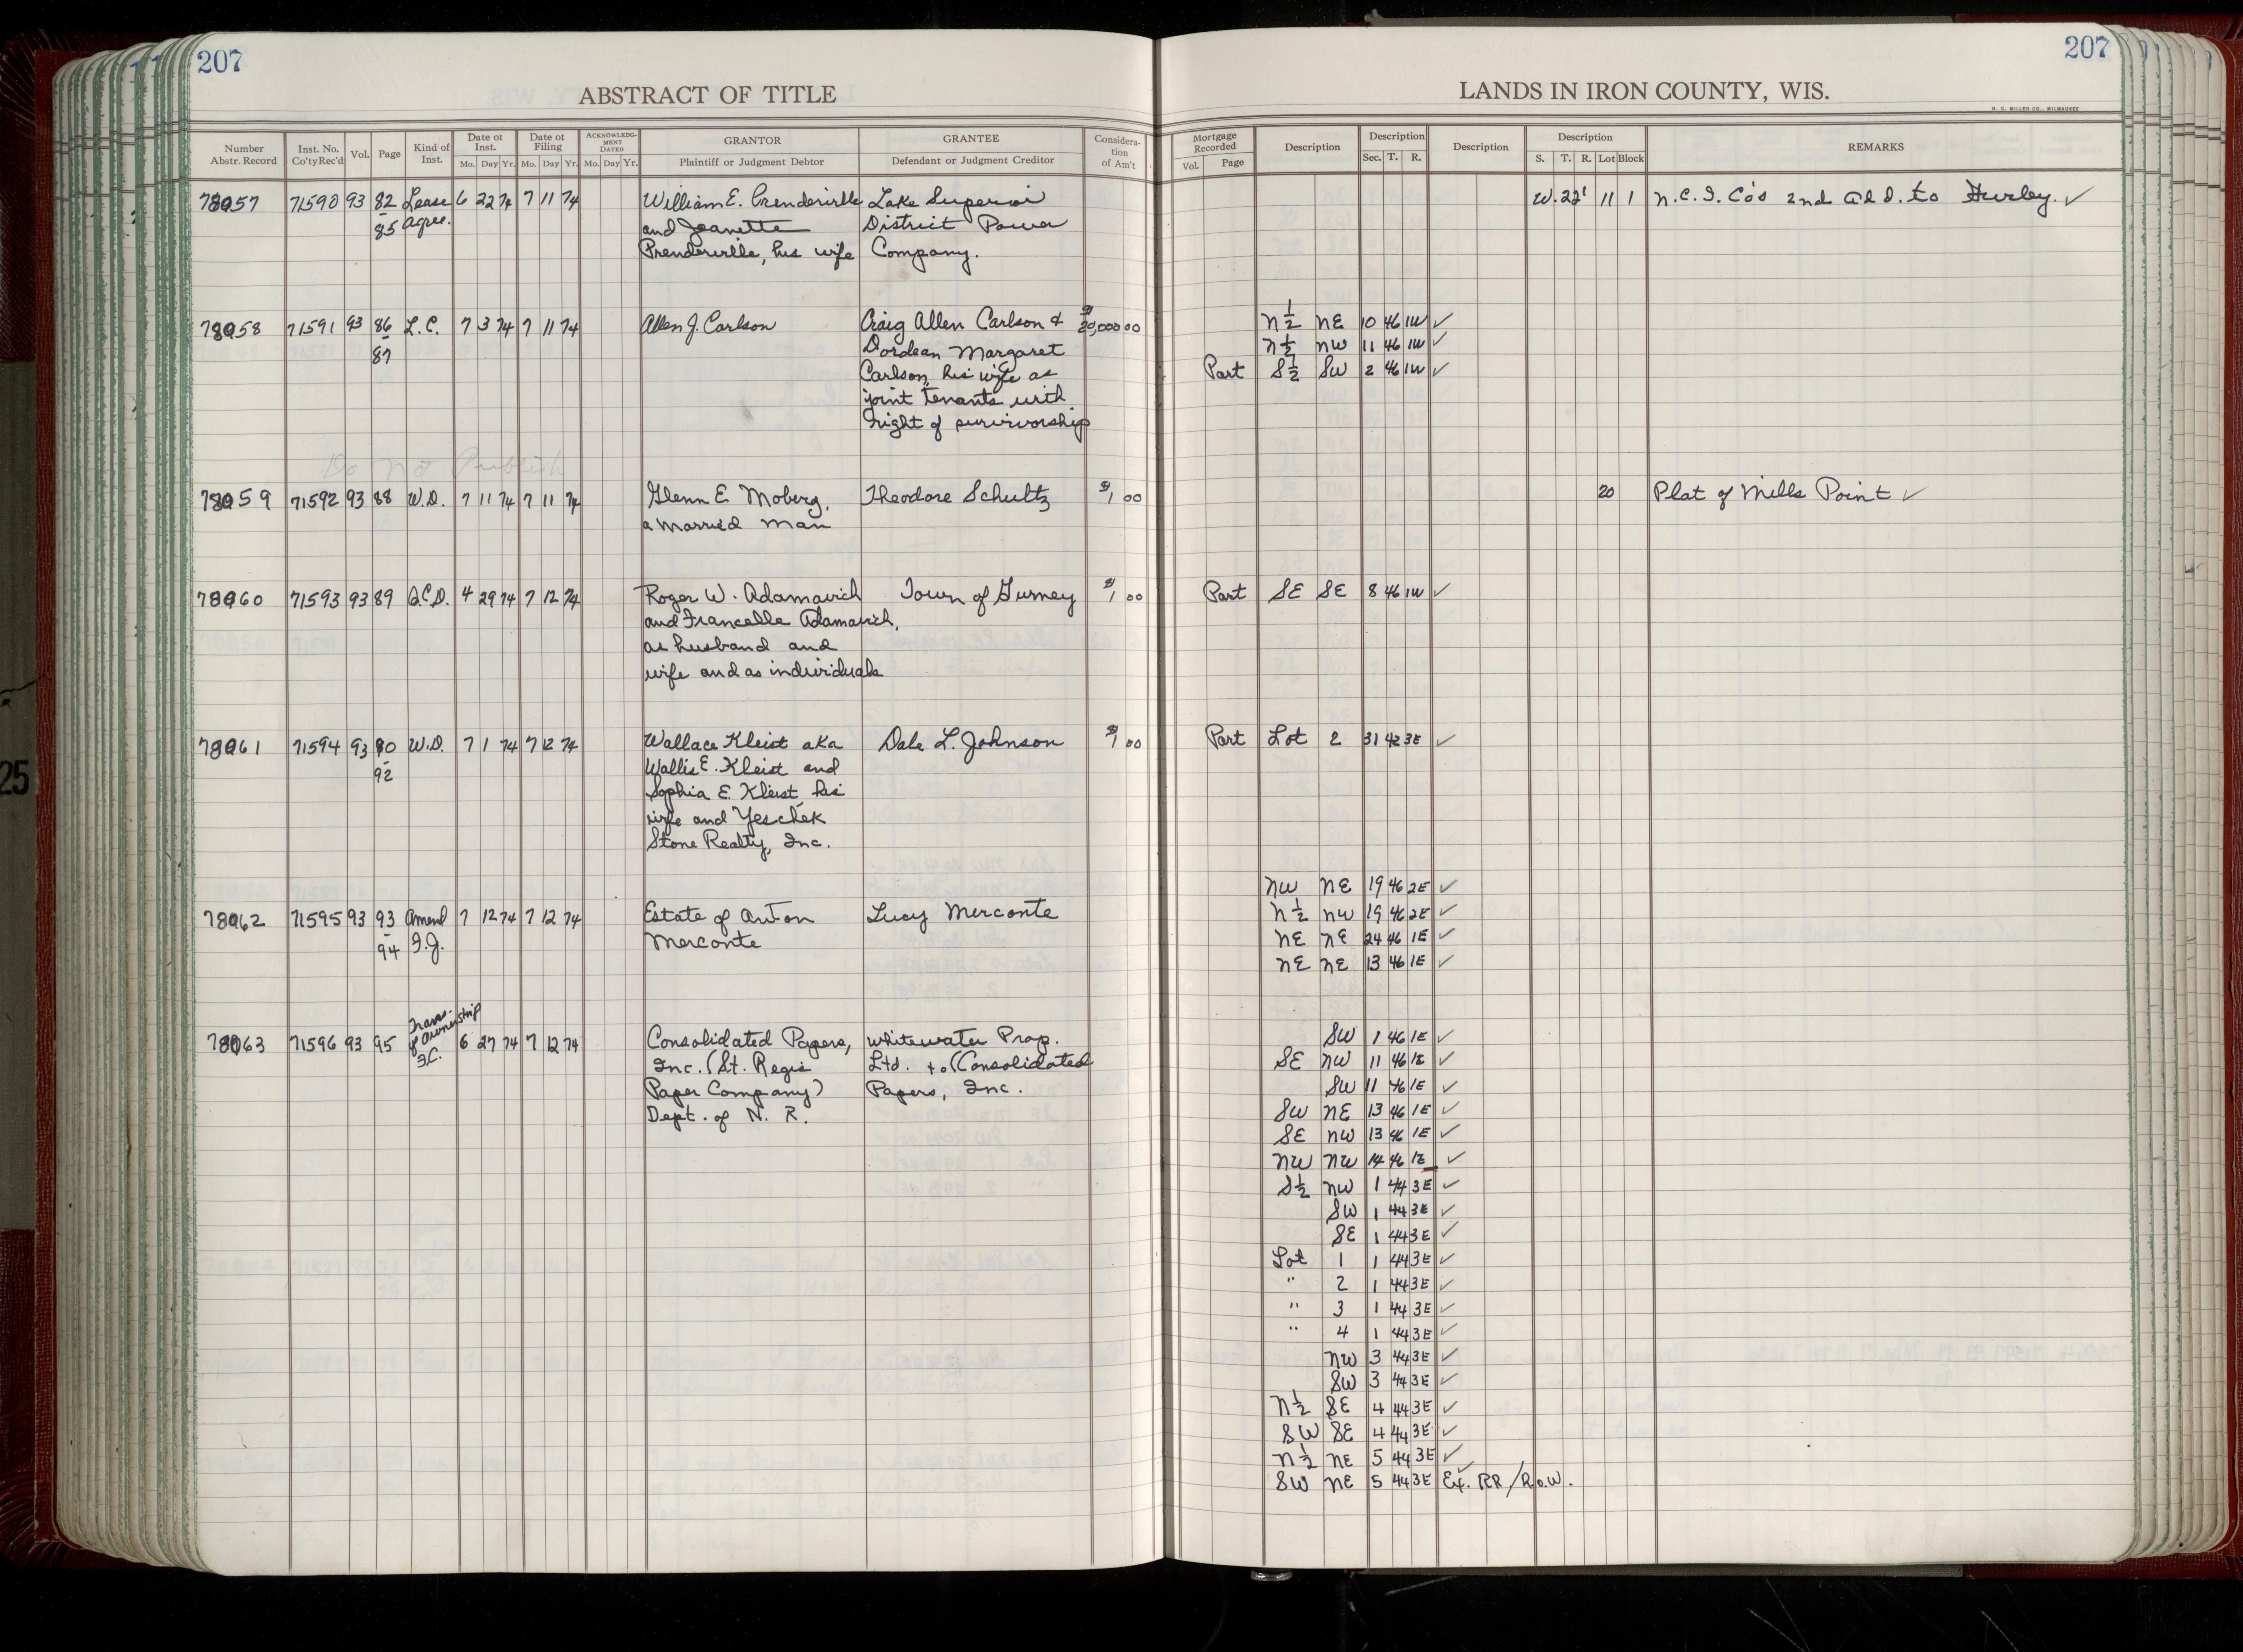 207
207
ABSTRACT OF TITLE
LANDS IN IRON COUNTY, WIS.
H. C. MILLER CO., MILWAUKEE
Number Abstr. Record | Inst. No. Co'ty Rec'd | Vol. | Page | Kind of Inst. | Date of Inst. Mo. Day Yr. | Date of Filing Mo. Day Yr. | ACKNOWLEDGMENT DATED Mo. Day Yr. | GRANTOR Plaintiff or Judgment Debtor | GRANTEE Defendant or Judgment Creditor | Consideration of Am't | Mortgage Recorded Vol. Page | Description | Description Sec. T. R. | Description | Description S. T. R. Lot Block | REMARKS
78057 71590 93 82 Lease 6 22 74 7 11 74 William E. Prenderville Lake Superior W. 22' 11 1 N.C.I. Co's 2nd Add. to Hurley. ✓
85 Agree. and Jeanette District Power
Prenderville, his wife Company.
78058 71591 93 86 L.C. 7 3 74 7 11 74 Allen J. Carlson Craig Allen Carlson & $20,000 00 N½ NE 10 46 1W ✓
87 Dordean Margaret N½ NW 11 46 1W ✓
Carlson, his wife as Part S½ SW 2 46 1W ✓
joint tenants with
right of survivorship
Do Not Publish
78059 71592 93 88 W.D. 7 11 74 7 11 74 Glenn E. Moberg, Theodore Schultz $1 00 20 Plat of Mills Point ✓
a married man
78060 71593 93 89 Q.C.D. 4 29 74 7 12 74 Roger W. Adamavich Town of Gurney $1 00 Part SE SE 8 46 1W ✓
and Francelle Adamavich,
as husband and
wife and as individuals
78061 71594 93 90 W.D. 7 1 74 7 12 74 Wallace Kleist aka Dale L. Johnson $1 00 Part Lot 2 31 42 3E ✓
92 Wallis E. Kleist and
Sophia E. Kleist, his
wife and Yeschek
Stone Realty, Inc.
NW NE 19 46 2E ✓
78062 71595 93 93 Amend 7 12 74 7 12 74 Estate of Anton Lucy Merconte N½ NW 19 46 2E ✓
94 F.J. Merconte NE NE 24 46 1E ✓
NE NE 13 46 1E ✓
Trans. of Ownership F.C.
78063 71596 93 95 6 27 74 7 12 74 Consolidated Papers, Whitewater Prop. SW 1 46 1E ✓
Inc. (St. Regis Ltd. to (Consolidated SE NW 11 46 1E ✓
Paper Company) Papers, Inc. SW 11 46 1E ✓
Dept. of N. R. SW NE 13 46 1E ✓
SE NW 13 46 1E ✓
NW NW 14 46 1E ✓
S½ NW 1 44 3E ✓
SW 1 44 3E ✓
SE 1 44 3E ✓
Lot 1 1 44 3E ✓
" 2 1 44 3E ✓
" 3 1 44 3E ✓
" 4 1 44 3E ✓
NW 3 44 3E ✓
SW 3 44 3E ✓
N½ SE 4 44 3E ✓
SW SE 4 44 3E ✓
N½ NE 5 44 3E ✓
SW NE 5 44 3E Ex. RR/R.O.W.
25